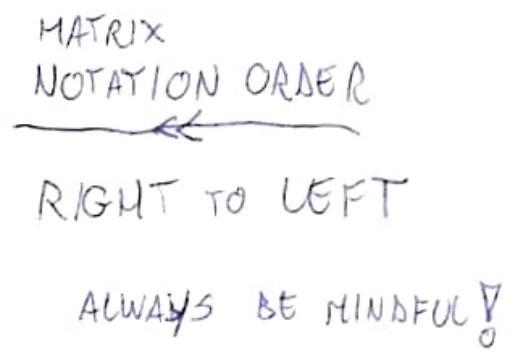 MATRIX
NOTATION ORDER
RIGHT TO LEFT
ALWAYS BE MINDFUL!